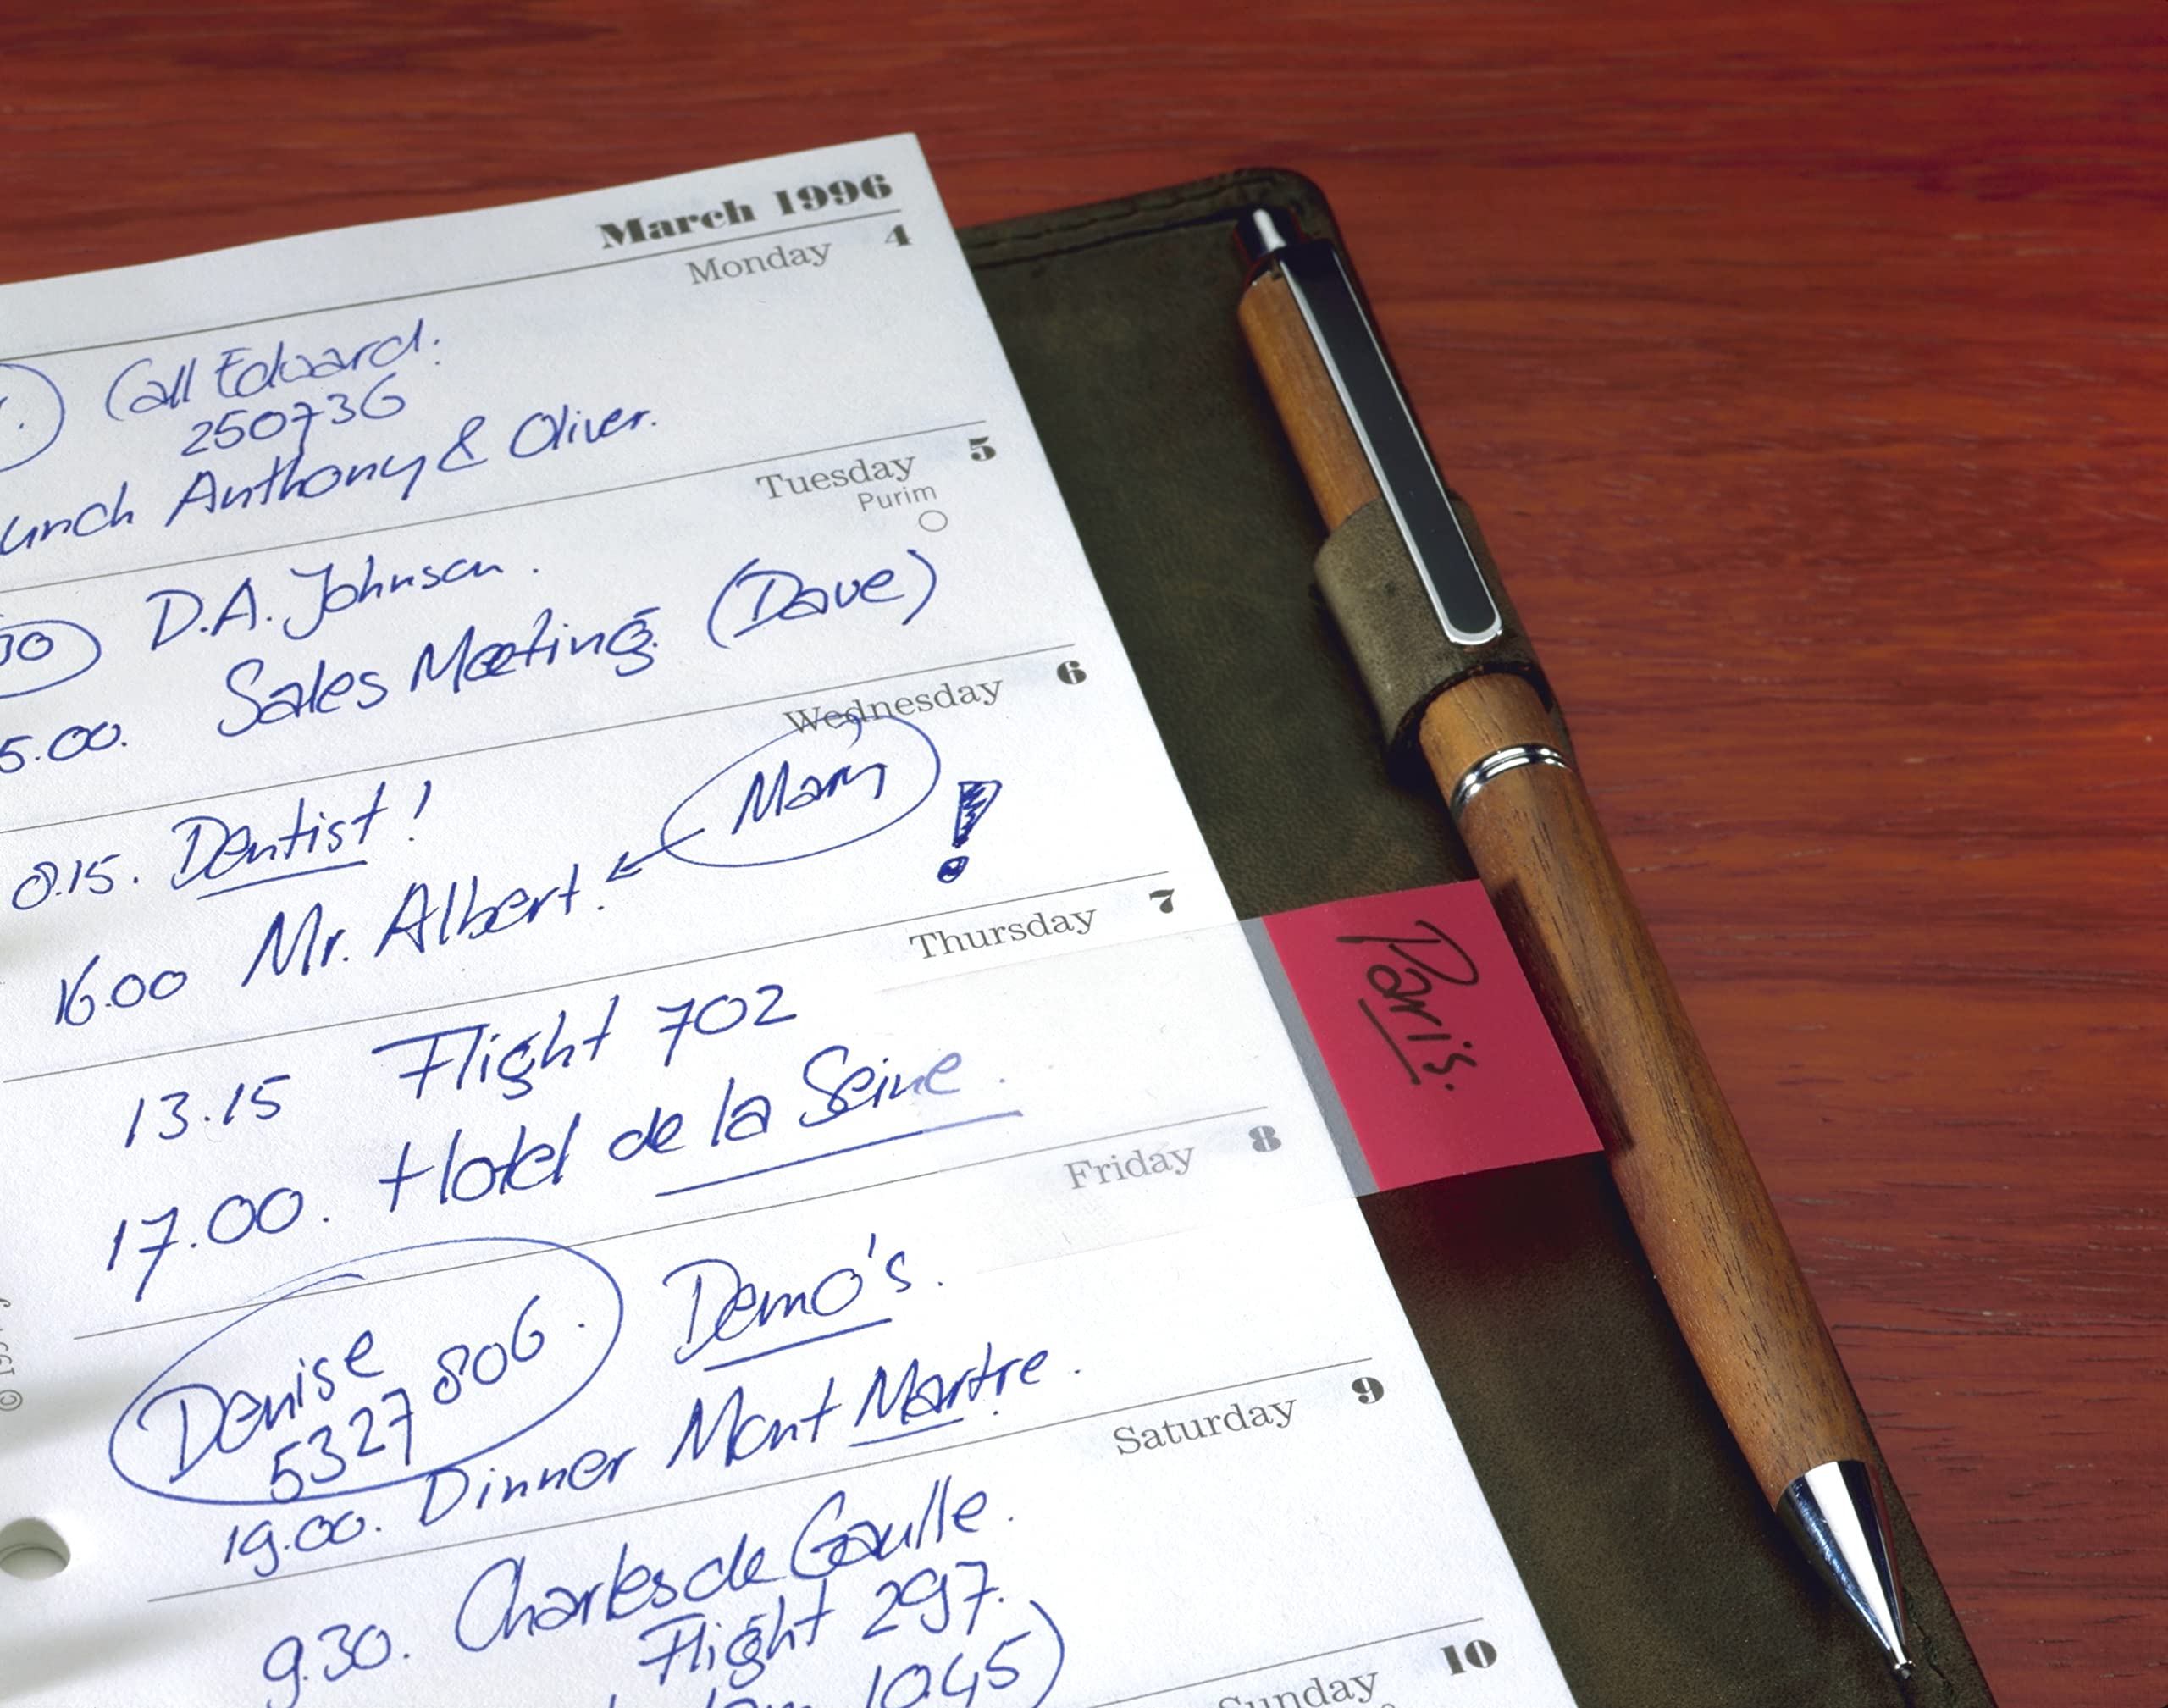 March 1996
Monday 4
Call Edward:
250736
Anthony & Oliver.
Tuesday 5
Purim
D.A. Johnson.
Sales Meeting. (Dave)
Wednesday 6
Mary
8.15. Dentist! !
16.00 Mr. Albert.
Thursday 7
13.15 Flight 702
17.00. Hotel de la Seine.
Paris.
Friday 8
Denise
5327806.
Demo's.
19.00. Dinner Mont Martre.
Saturday 9
9.30. Charles de Gaulle.
Flight 297.
10.45)
Sunday 10